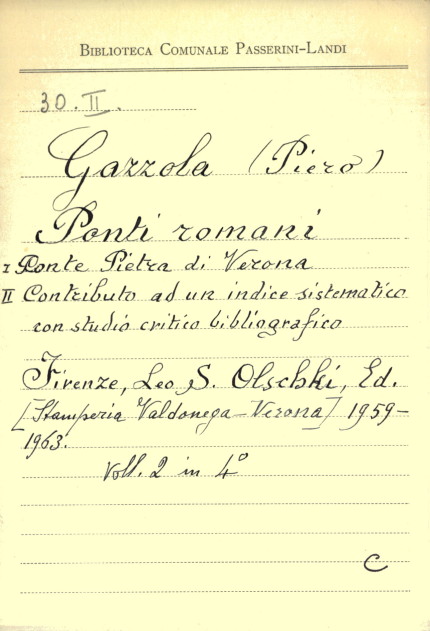 BIBLIOTECA COMUNALE PASSERINI-LANDI
30. II.
Gazzola (Piero)
Ponti romani
I Ponte Pietra di Verona
II Contributo ad un indice sistematico
con studio critico bibliografico
Firenze, Leo S. Olschki, Ed.
[Stamperia Valdonega - Verona] 1959-
1963.
Voll. 2 in 4°
C